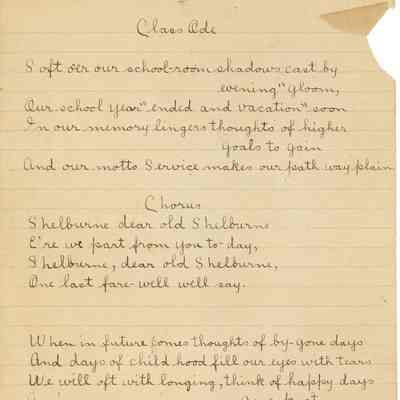 Class Ode
Soft o'er our school-room shadows cast by
evening" gloom,
Our school year" ended and vacation" soon
In our memory lingers thoughts of higher
goals to gain
And our motto Service makes our path way plain
Chorus
Shelburne dear old Shelburne
E're we part from you to-day,
Shelburne, dear old Shelburne,
One last fare-well well say.
When in future comes thoughts of by-gone days
And days of child hood fill our eyes with tears
We will oft with longing, think of happy days